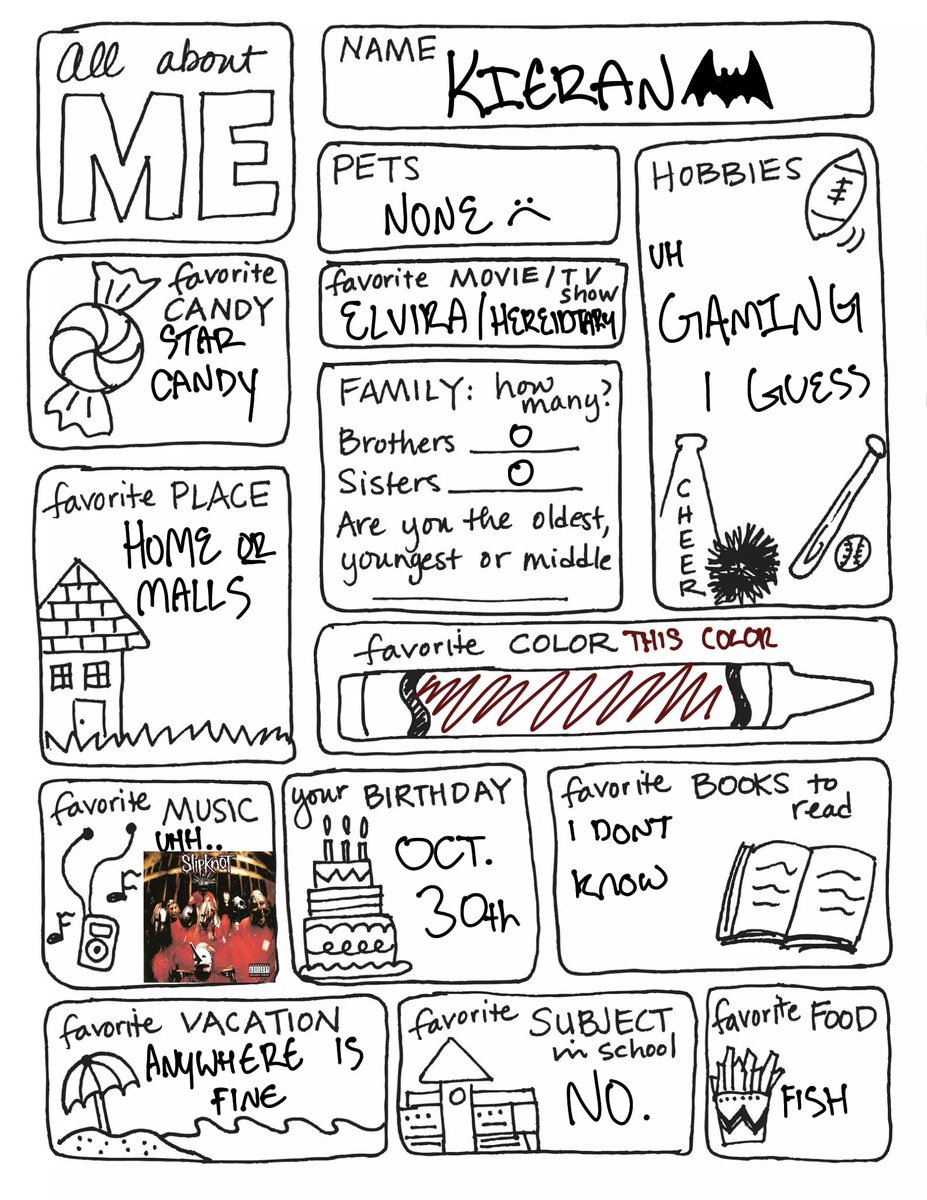 All about
ME
NAME
KIERAN
PETS
NONE :(
HOBBIES
UH
GAMING
I GUESS
CHEER
favorite
CANDY
STAR
CANDY
favorite MOVIE/TV
show
ELVIRA/HEREIDTARY
FAMILY: how
many?
Brothers 0
Sisters 0
Are you the oldest,
youngest or middle
favorite PLACE
HOME OR
MALLS
favorite COLOR THIS COLOR
favorite MUSIC
UHH..
Slipknot
your BIRTHDAY
OCT.
30th
favorite BOOKS to
read
I DONT
KNOW
favorite VACATION
ANYWHERE IS
FINE
favorite SUBJECT
in school
NO.
favorite FOOD
FISH